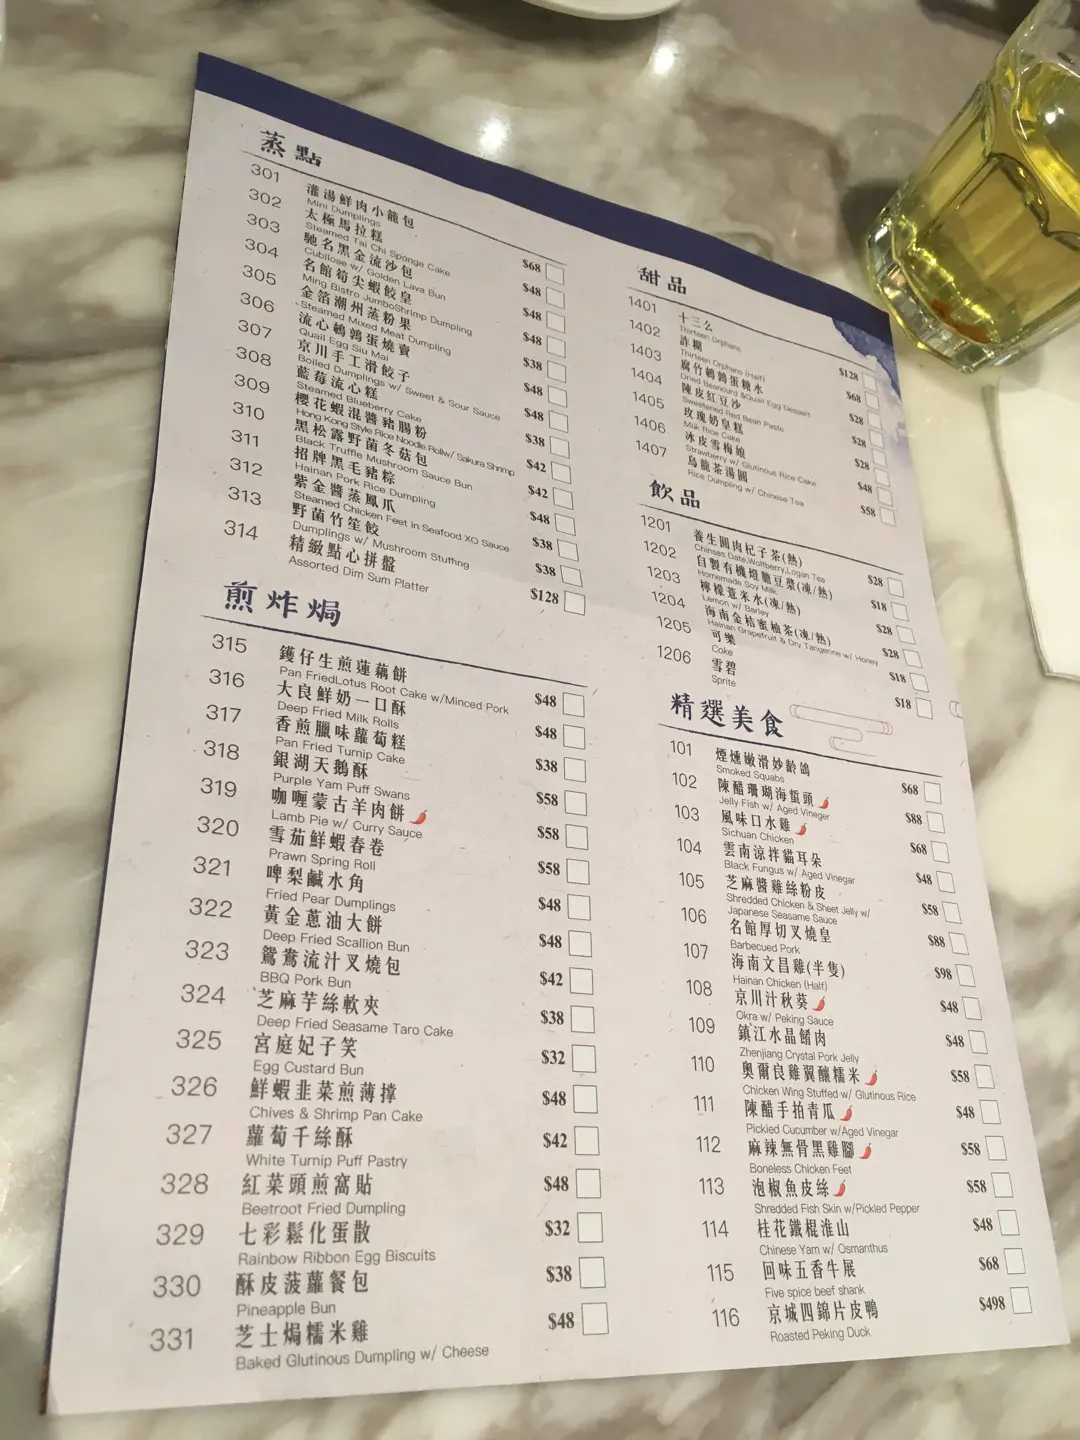 蒸點
301
灌湯鮮肉小籠包
Mini Dumplings
$68
302
太極馬拉糕
Steamed Tai Chi Sponge Cake
$48
303
馳名黑金流沙包
Cubilose w/ Golden Lava Bun
$48
304
名館筍尖蝦餃皇
Ming Bistro JumboShrimp Dumpling
$48
305
金箔潮州蒸粉果
Steamed Mixed Meat Dumpling
$38
306
流心鵪鶉蛋燒賣
Quail Egg Siu Mai
$48
307
京川手工滑餃子
Boiled Dumplings w/ Sweet & Sour Sauce
$48
308
藍莓流心糕
Steamed Blueberry Cake
$38
309
櫻花蝦混醬豬腸粉
Hong Kong Style Rice Noodle Rollw/ Sakura Shrimp
$42
310
黑松露野菌冬菇包
Black Truffle Mushroom Sauce Bun
$42
311
招牌黑毛豬粽
Hainan Pork Rice Dumpling
$48
312
紫金醬蒸鳳爪
Steamed Chicken Feet in Seafood XO Sauce
$38
313
野菌竹笙餃
Dumplings w/ Mushroom Stuffing
$38
314
精緻點心拼盤
Assorted Dim Sum Platter
$128
煎炸焗
315
鑊仔生煎蓮藕餅
Pan FriedLotus Root Cake w/Minced Pork
$48
316
大良鮮奶一口酥
Deep Fried Milk Rolls
$48
317
香煎臘味蘿蔔糕
Pan Fried Turnip Cake
$38
318
銀湖天鵝酥
Purple Yam Puff Swans
$58
319
咖喱蒙古羊肉餅
Lamb Pie w/ Curry Sauce
$58
320
雪茄鮮蝦春卷
Prawn Spring Roll
$58
321
啤梨鹹水角
Fried Pear Dumplings
$48
322
黃金蔥油大餅
Deep Fried Scallion Bun
$48
323
鴛鴦流汁叉燒包
BBQ Pork Bun
$42
324
芝麻芋絲軟夾
Deep Fried Seasame Taro Cake
$38
325
宮庭妃子笑
Egg Custard Bun
$32
326
鮮蝦韭菜煎薄撐
Chives & Shrimp Pan Cake
$48
327
蘿蔔千絲酥
White Turnip Puff Pastry
$42
328
紅菜頭煎窩貼
Beetroot Fried Dumpling
$48
329
七彩鬆化蛋散
Rainbow Ribbon Egg Biscuits
$32
330
酥皮菠蘿餐包
Pineapple Bun
$38
331
芝士焗糯米雞
Baked Glutinous Dumpling w/ Cheese
$48
甜品
1401
十三么
Thirteen Orphans
$128
1402
詐糊
Thirteen Orphans (Half)
$68
1403
腐竹鵪鶉蛋糖水
Dried Beancurd &Quail Egg Dessert
$28
1404
陳皮紅豆沙
Sweetened Red Bean Paste
$28
1405
玫瑰奶皇糕
Milk Rice Cake
$28
1406
冰皮雪梅娘
Strawberry w/ Glutinous Rice Cake
$48
1407
烏龍茶湯圓
Rice Dumpling w/ Chinese Tea
$58
飲品
1201
養生圓肉杞子茶(熱)
Chinses Date,Wolfberry,Logan Tea
$28
1202
自製有機燈膽豆漿(凍/熱)
Homemade Soy Milk
$18
1203
檸檬薏米水(凍/熱)
Lemon w/ Barley
$28
1204
海南金桔蜜柚茶(凍/熱)
Hainan Grapefruit & Dry Tangerine w/ Honey
$28
1205
可樂
Coke
$18
1206
雪碧
Sprite
$18
精選美食
101
煙燻嫩滑妙齡鴿
Smoked Squabs
$68
102
陳醋珊瑚海蜇頭
Jelly Fish w/ Aged Vineger
$88
103
風味口水雞
Sichuan Chicken
$68
104
雲南涼拌貓耳朵
Black Fungus w/ Aged Vinegar
$48
105
芝麻醬雞絲粉皮
Shredded Chicken & Sheet Jelly w/
Japanese Seasame Sauce
$58
106
名館厚切叉燒皇
Barbecued Pork
$88
107
海南文昌雞(半隻)
Hainan Chicken (Half)
$98
108
京川汁秋葵
Okra w/ Peking Sauce
$48
109
鎮江水晶餚肉
Zhenjiang Crystal Pork Jelly
$48
110
奧爾良雞翼釀糯米
Chicken Wing Stuffed w/ Glutinous Rice
$58
111
陳醋手拍青瓜
Pickied Cucumber w/Aged Vinegar
$48
112
麻辣無骨黑雞腳
Boneless Chicken Feet
$58
113
泡椒魚皮絲
Shredded Fish Skin w/Pickled Pepper
$58
114
桂花鐵棍淮山
Chinese Yam w/ Osmanthus
$48
115
回味五香牛展
Five spice beef shank
$68
116
京城四錦片皮鴨
Roasted Peking Duck
$498